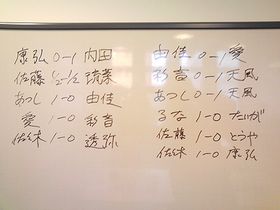 康弘 0-1 内田
佐藤 ½-½ 琉菜
あつし 1-0 由佳
愛 1-0 彩音
佐々木 1-0 透弥
由佳 0-1 愛
彩音 0-1 天風
あつし 0-1 天風
るな 1-0 たいが
佐藤 1-0 とうや
佐々木 1-0 康弘